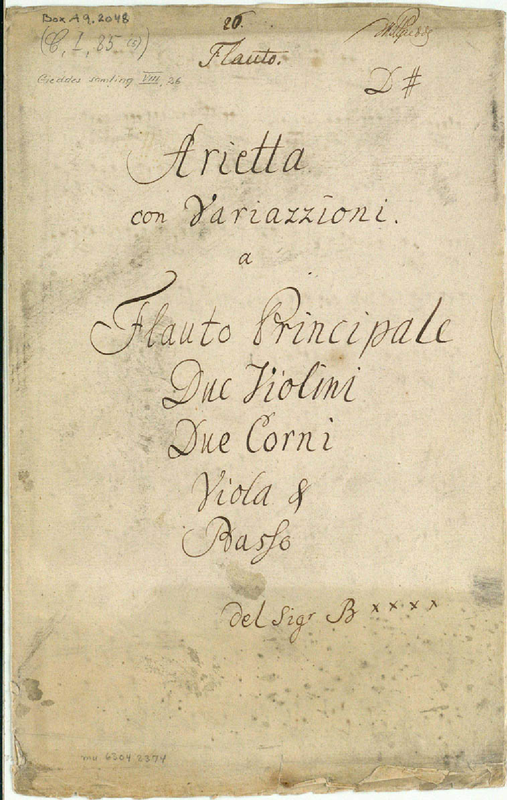 Box A9. 2048
(C, I, 85 (5))
Gieddes samling VIII, 26
26
Flauto.
D #
Arietta
con Variazzioni.
a
Flauto Principale
Due Violini
Due Corni
Viola &
Basso
del Sigr B x x x x
mu. 6304 2374